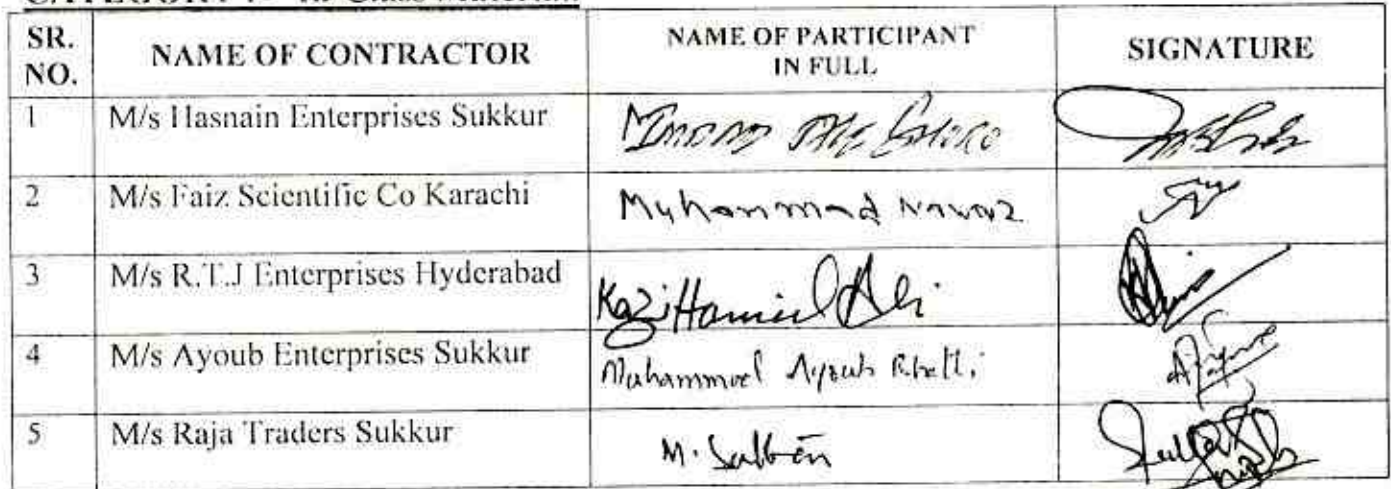 SR. NO.
NAME OF CONTRACTOR
NAME OF PARTICIPANT
IN FULL
SIGNATURE
1 M/s Hasnain Enterprises Sukkur
2 M/s Faiz Scientific Co Karachi Muhammad Nawaz
3 M/s R.T.J Enterprises Hyderabad Kazi Hamid Ali
4 M/s Ayoub Enterprises Sukkur Muhammad Ayoub Bhatti
5 M/s Raja Traders Sukkur M.